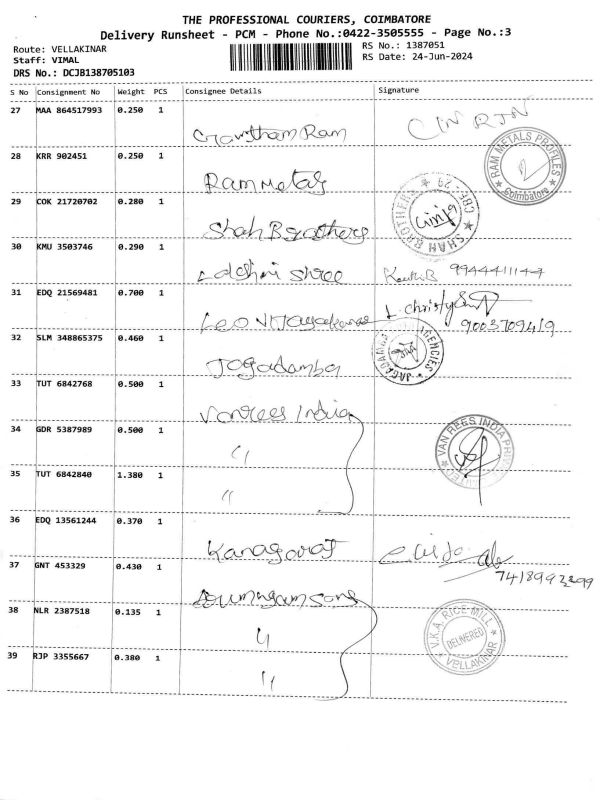 THE PROFESSIONAL COURIERS, COIMBATORE
Delivery Runsheet - PCM - Phone No.:0422-3505555 - Page No.:3
Route: VELLAKINAR
RS No.: 1387051
Staff: VIMAL
RS Date: 24-Jun-2024
DRS No.: DCJB138705103
S No Consignment No Weight PCS Consignee Details Signature
27 MAA 864517993 0.250 1
Gowtham Ram
28 KRR 902451 0.250 1
RAM METALS PROFILES
Coimbatore
Ram Metals
29 COK 21720702 0.280 1
SHAH BROTHERS
CBE-29
Shah Brothers
30 KMU 3503746 0.290 1
Lakshmi Shree 9944411147
31 EDQ 21569481 0.700 1
L. Christy
Leo 9003709419
32 SLM 348865375 0.460 1
JAGADAMBA AGENCIES
Jagadamba
33 TUT 6842768 0.500 1
Vanrees India
34 GDR 5387989 0.500 1
VAN REES INDIA PRIVATE LIMITED
"
35 TUT 6842840 1.380 1
"
36 EDQ 13561244 0.370 1
Kanagaraj
37 GNT 453329 0.430 1
38 NLR 2387518 0.135 1
V.K.A. RICE MILL
DELIVERED
VELLAKINAR
"
39 RJP 3355667 0.380 1
"